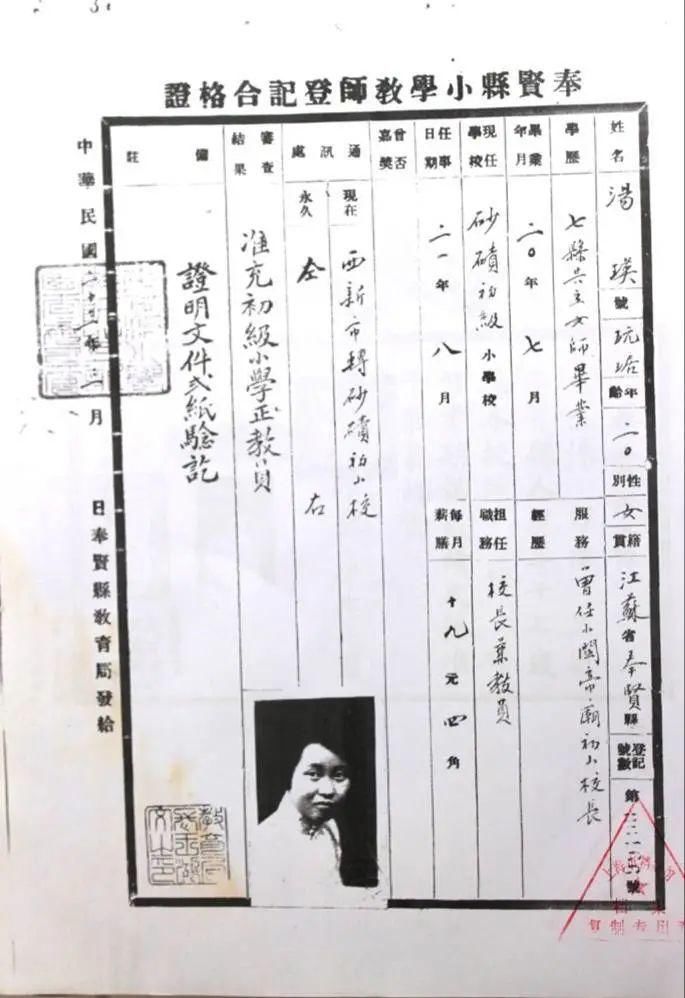 奉賢縣小學教師登記合格證
姓名 湯瑛 號 玩浯 年齡 二〇 性別 女 籍貫 江蘇省奉賢縣 登記號數 第 號
學歷 七縣共立女師畢業
服務經歷 曾任小關帝廟初小校長
畢業年月 二〇年七月
現任學校 砂磧初級小學校
擔任職務 校長兼教員
任事日期 二一年八月
每月薪膳 十九元四角
曾否嘉獎
通訊處
現在 西新市轉砂磧初小校
永久 仝右
審查結果 准充初級小學正教員
備註 證明文件弍紙驗訖
中華民國二十 年 月 日奉賢縣教育局發給